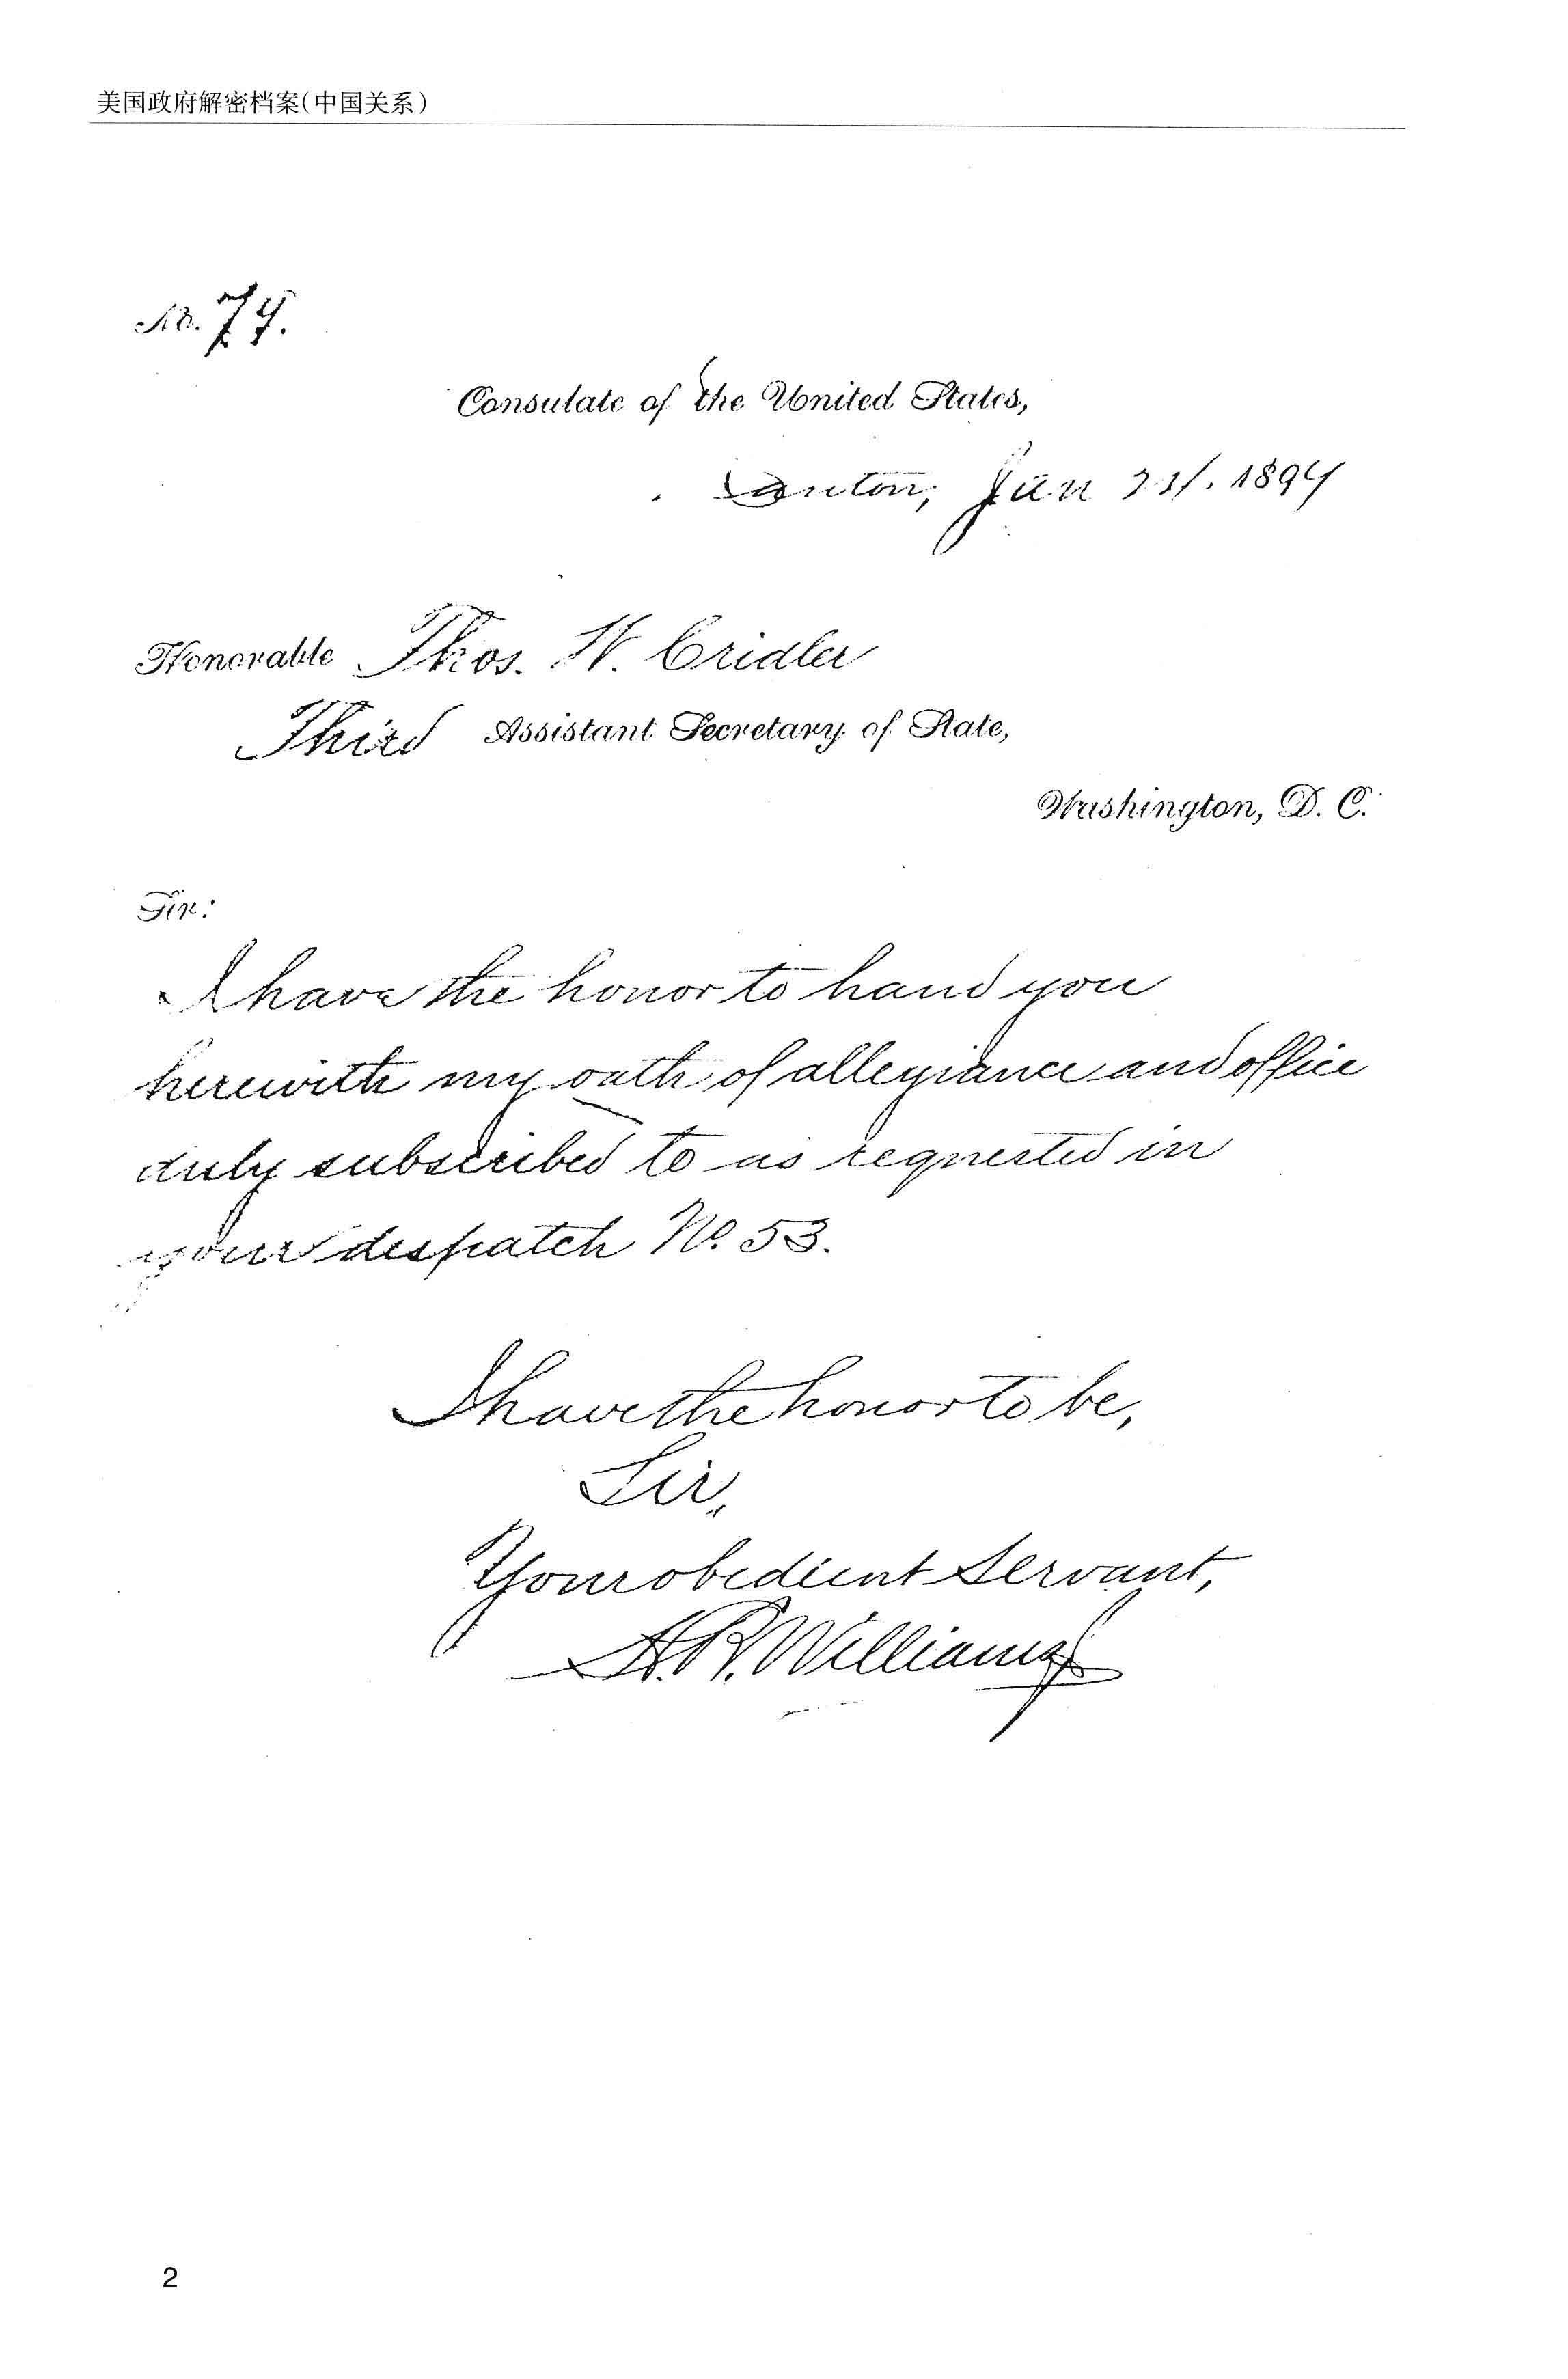 美国政府解密档案(中国关系)
No. 74.
Consulate of the United States,
Canton, Jan 1894
Honorable Thos. W. Cridler
Third Assistant Secretary of State,
Washington, D. C.
Sir:
I have the honor to hand you
herewith my oath of allegiance and office
duly subscribed to as requested in
your despatch No. 53.
I have the honor to be,
Sir,
Your obedient servant,
A. R. Williams
2